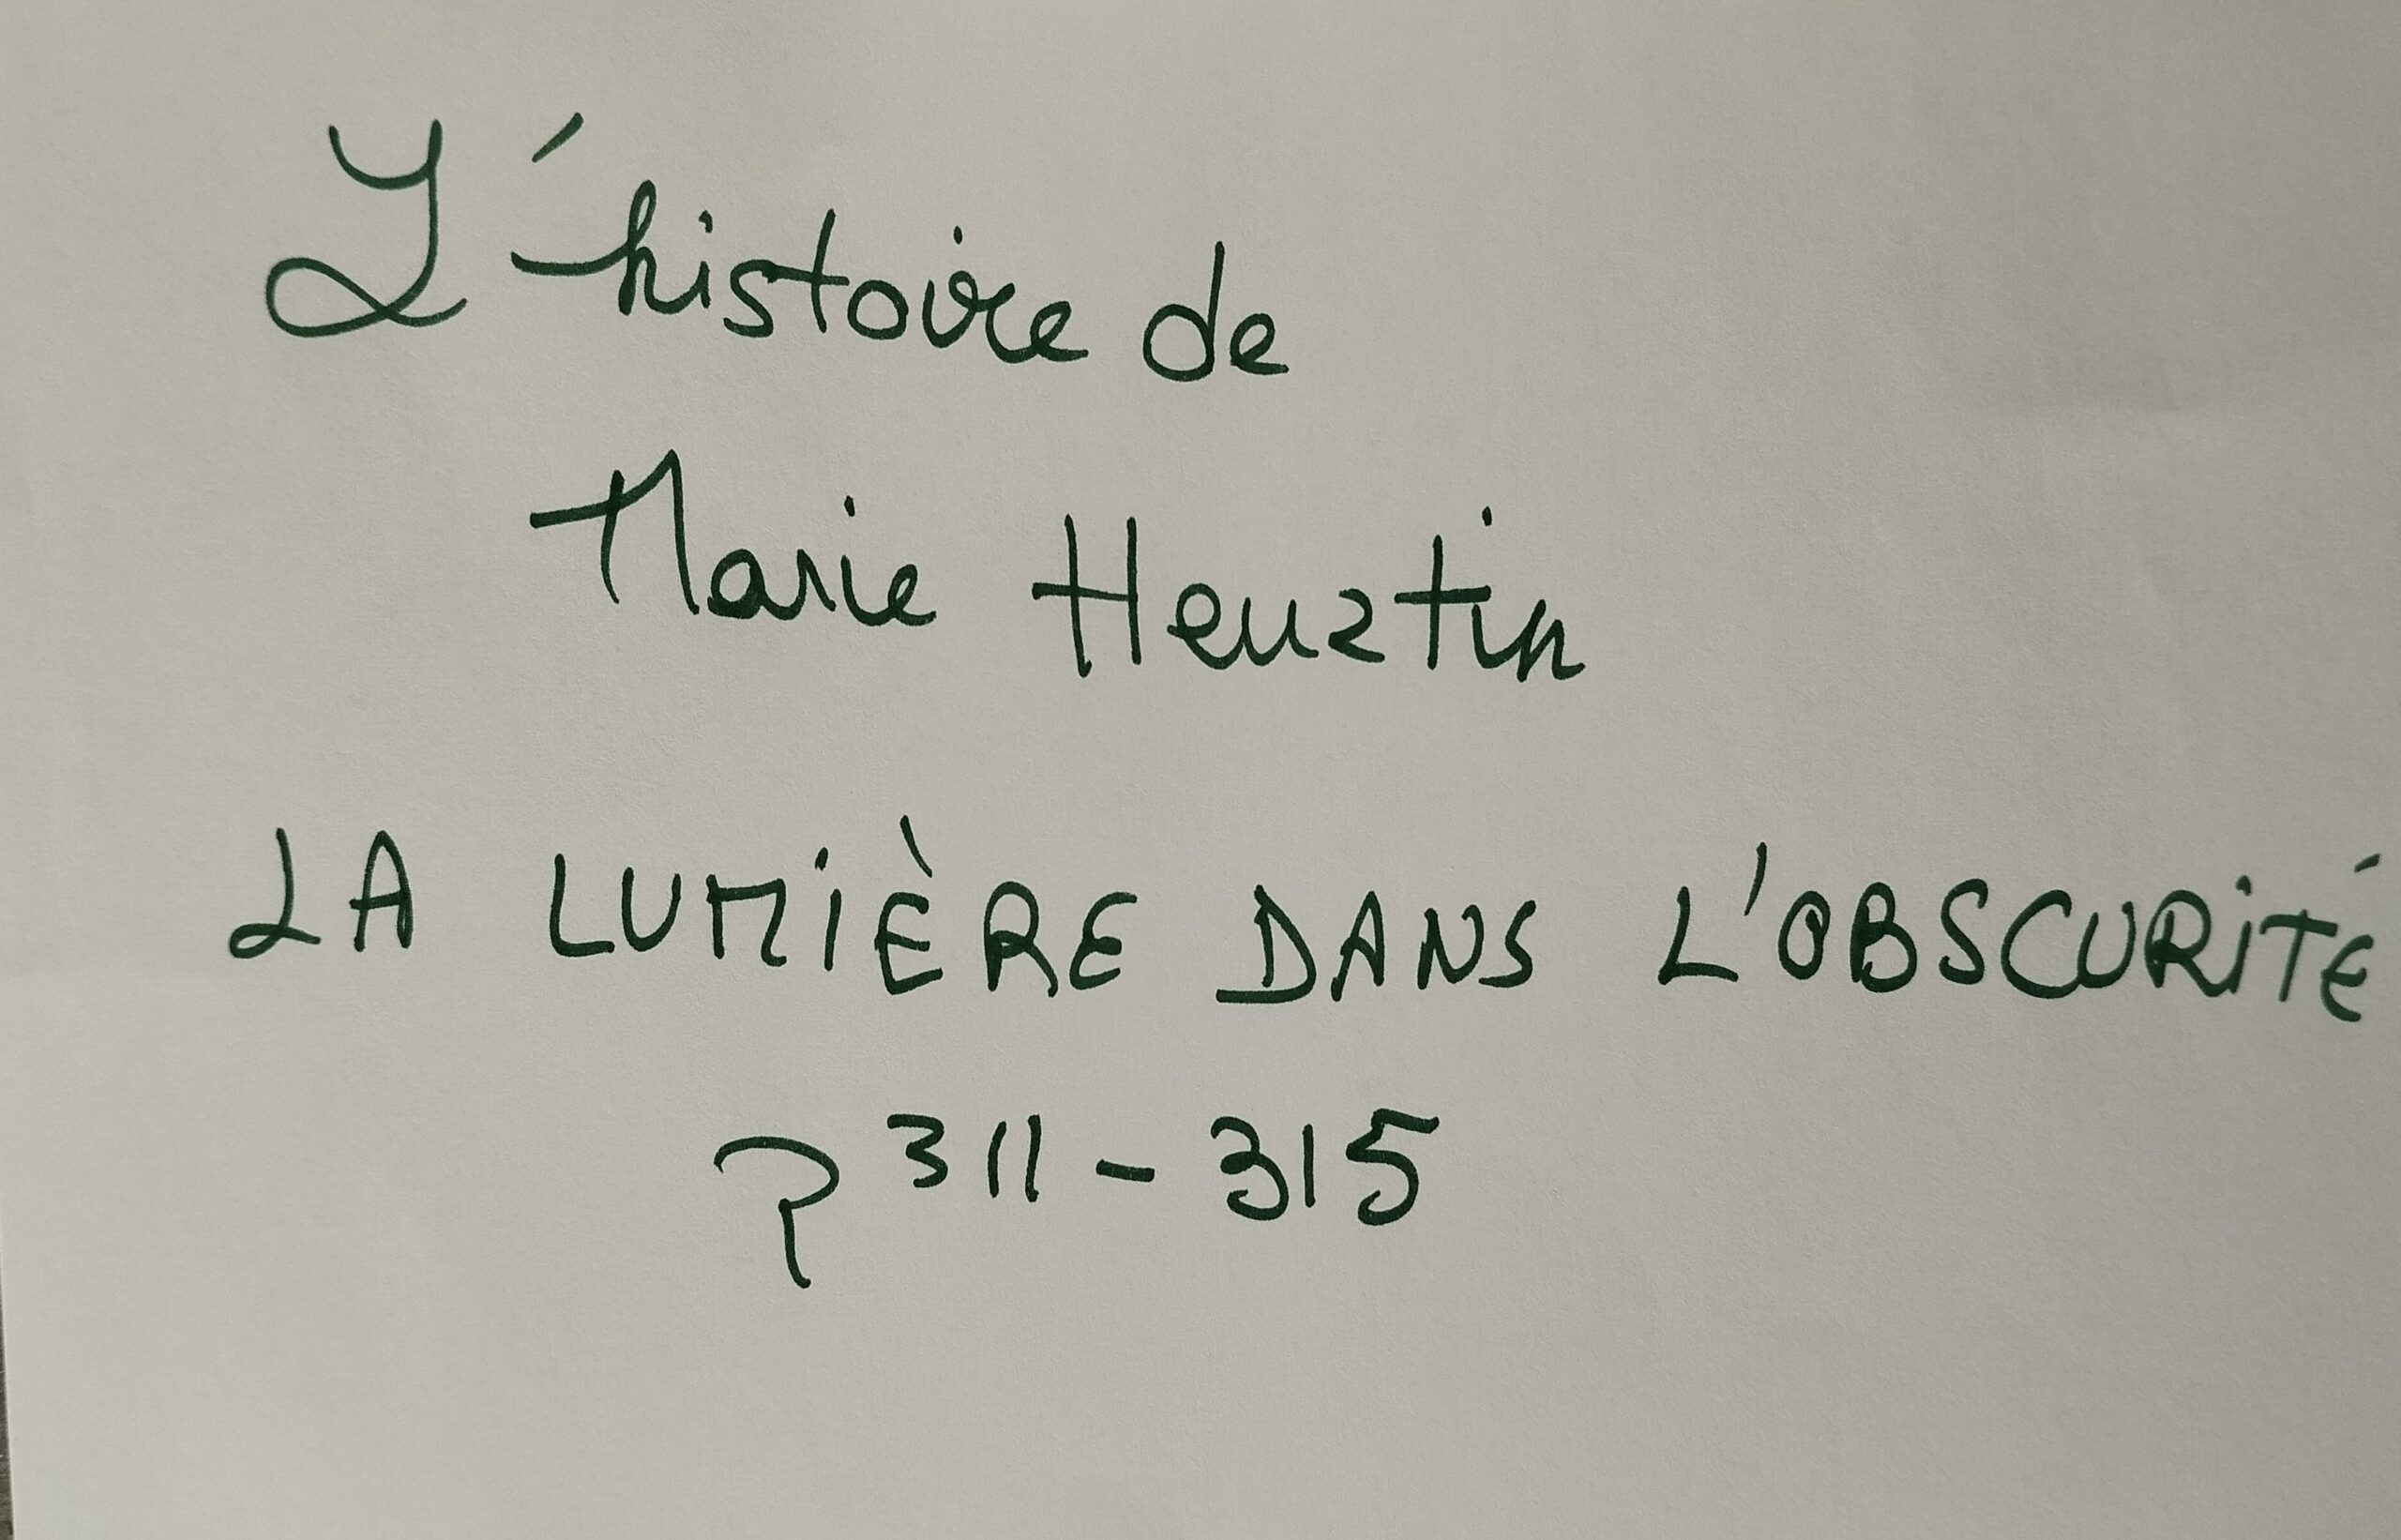 L'histoire de
Marie Heuztin
LA LUMIÈRE DANS L'OBSCURITÉ
P 311-315